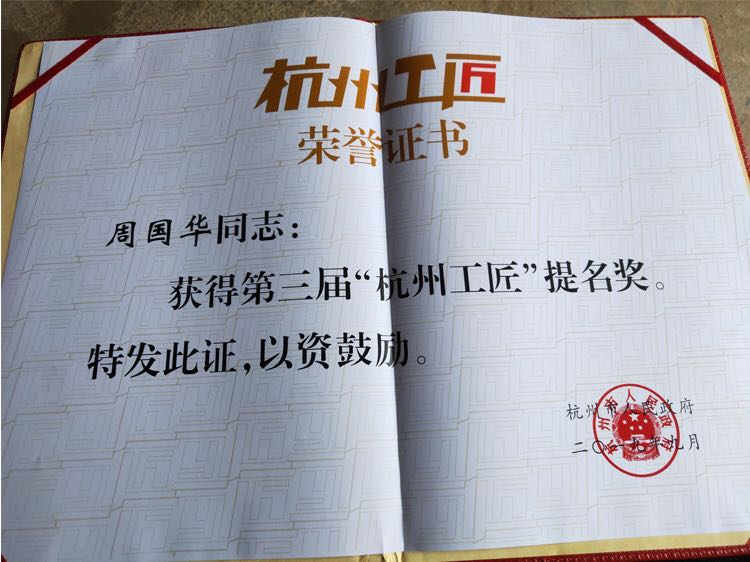 杭州工匠
荣誉证书
周国华同志：
获得第三届“杭州工匠”提名奖。
特发此证，以资鼓励。
杭州市人民政府
二〇一九年九月
杭州市人民政府